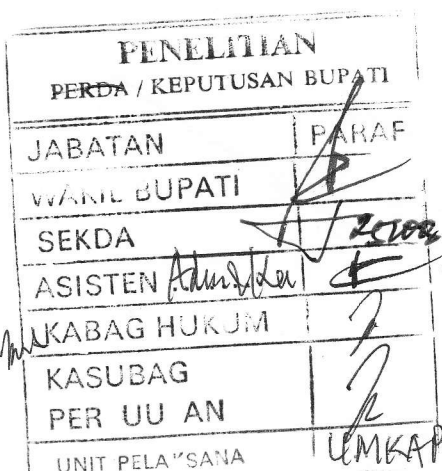 PENELITIAN
PERDA / KEPUTUSAN BUPATI
JABATAN PARAF
WAKIL BUPATI
SEKDA
ASISTEN
KABAG HUKUM
KASUBAG
PER UU AN
UNIT PELA"SANA